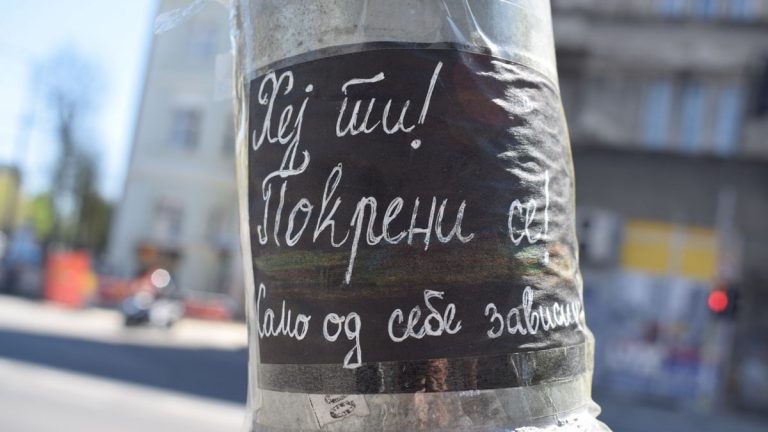 Хеј ти!
Покрени се!
Само од себе зависиш